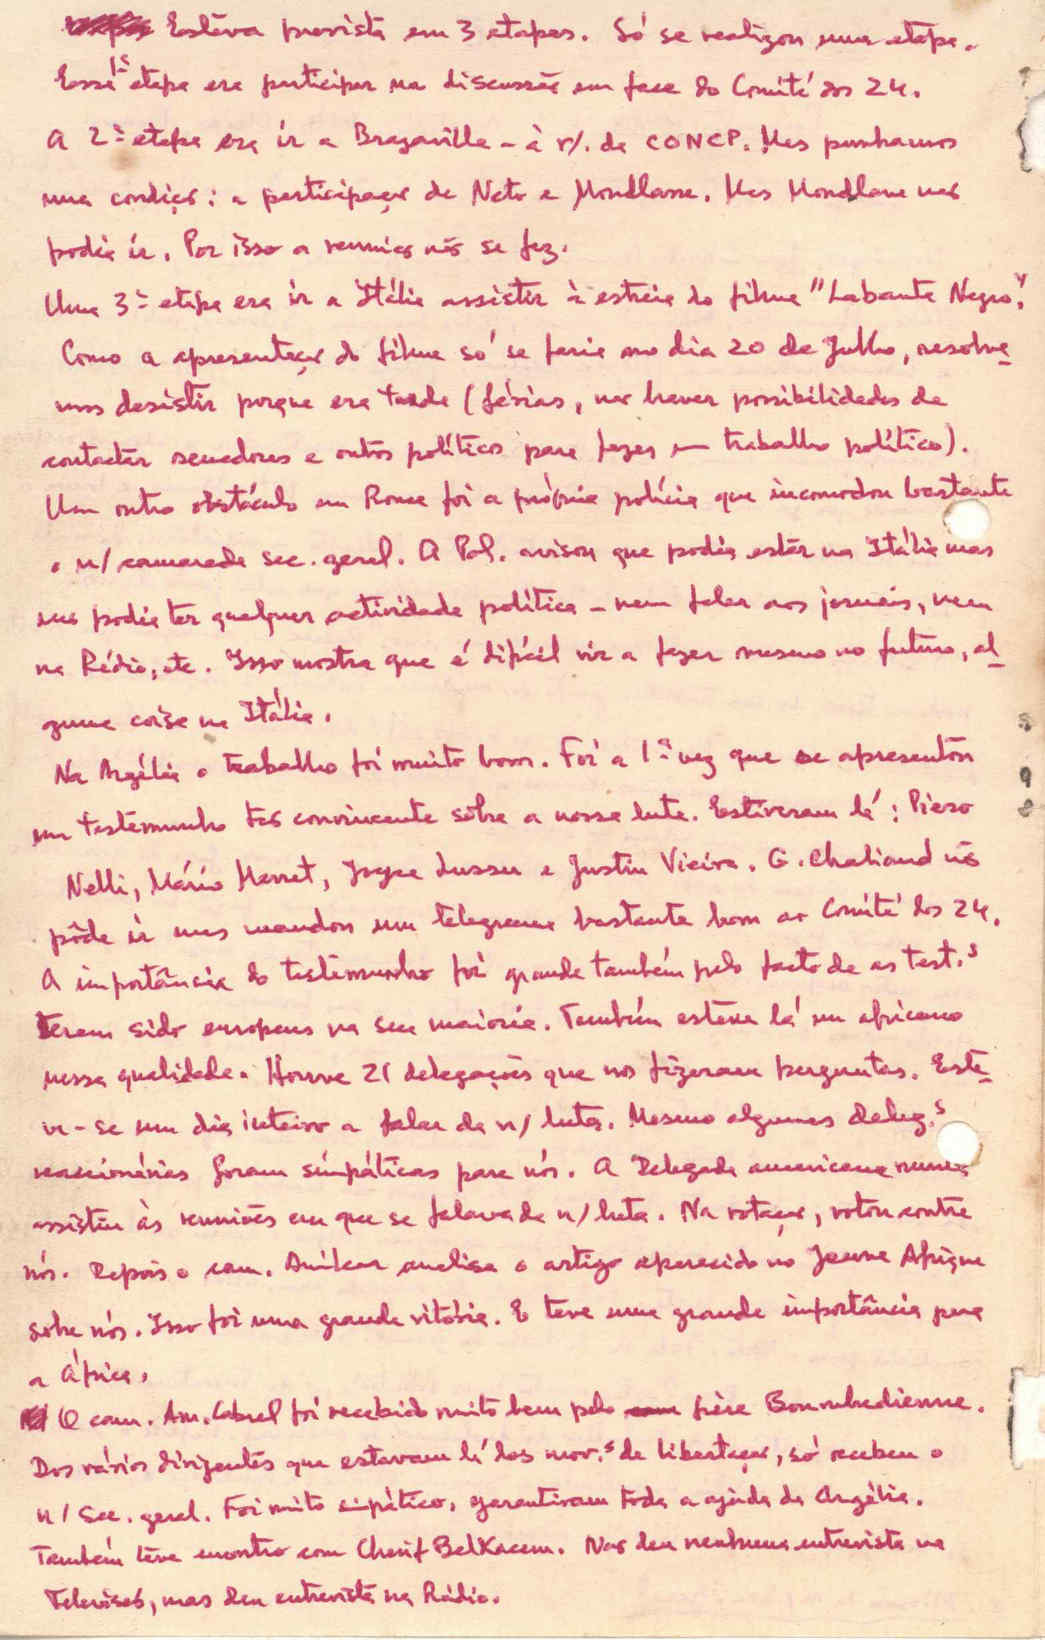 Estava prevista em 3 etapas. Só se realizou uma etapa.
Essa 1ª etapa era participar na discussão em face do Comité dos 24.
A 2ª etapa era ir a Brazaville - à r/. da CONCP. Mas punhamos
uma condiçao: a participaçao de Neto e Mondlane. Mas Mondlane nao
podia ir. Por isso a reuniao não se fez.
Uma 3ª etapa era ir a Itália assistir à estreia do filme "Labanta Negro".
Como a apresentaçao do filme só se faria no dia 20 de Julho, resolve_
mos desistir porque era tarde (férias, nao haver possibilidades de
contactar senadores e outros políticos para fazer um trabalho político).
Um outro obstáculo em Roma foi a própria polícia que incomodou bastante
o n/ camarada sec. geral. A Pol. avisou que podia estar na Itália mas
nao podia ter qualquer actividade política - nem falar aos jornais, nem
na Rádio, etc. Isso mostra que é difícil vir a fazer mesmo no futuro, al_
guma coisa na Itália.
Na Argélia o trabalho foi muito bom. Foi a 1ª vez que se apresentou
um testemunho tão convincente sôbre a nossa luta. Estiveram lá: Piero
Nelli, Mário Marret, Joyce Lussu e Justin Vieira. G. Chaliand não
pôde ir mas mandou um telegrama bastante bom ao Comité dos 24.
A importância do testemunho foi grande também pelo facto de as test.s
terem sido europeus na sua maioria. Também esteve lá um africano
nessa qualidade. Houve 21 delegações que nos fizeram perguntas. Este_
ve-se um dia inteiro a falar da n/ luta. Mesmo algumas deleg.s
reaccionárias foram simpáticas para nós. A Delegada americana nunca
assistiu às reuniões em que se falava da n/ luta. Na votaçao, votou contra
nós. Depois o cam. Amílcar analisa o artigo aparecido no Jeune Afrique
sobre nós. Isso foi uma grande vitória. E teve uma grande importância para
a África.
O cam. Am. Cabral foi recebido muito bem pelo frère Bonmbedienne.
Dos vários dirigentes que estavam lá dos mov.s de libertaçao, só recebeu o
n/ Sec. geral. Foi muito simpático, garantiram toda a ajuda da Argélia.
Também teve encontro com Cherif BelKacem. Nao deu nenhuma entrevista na
Televisão, mas deu entrevista na Rádio.